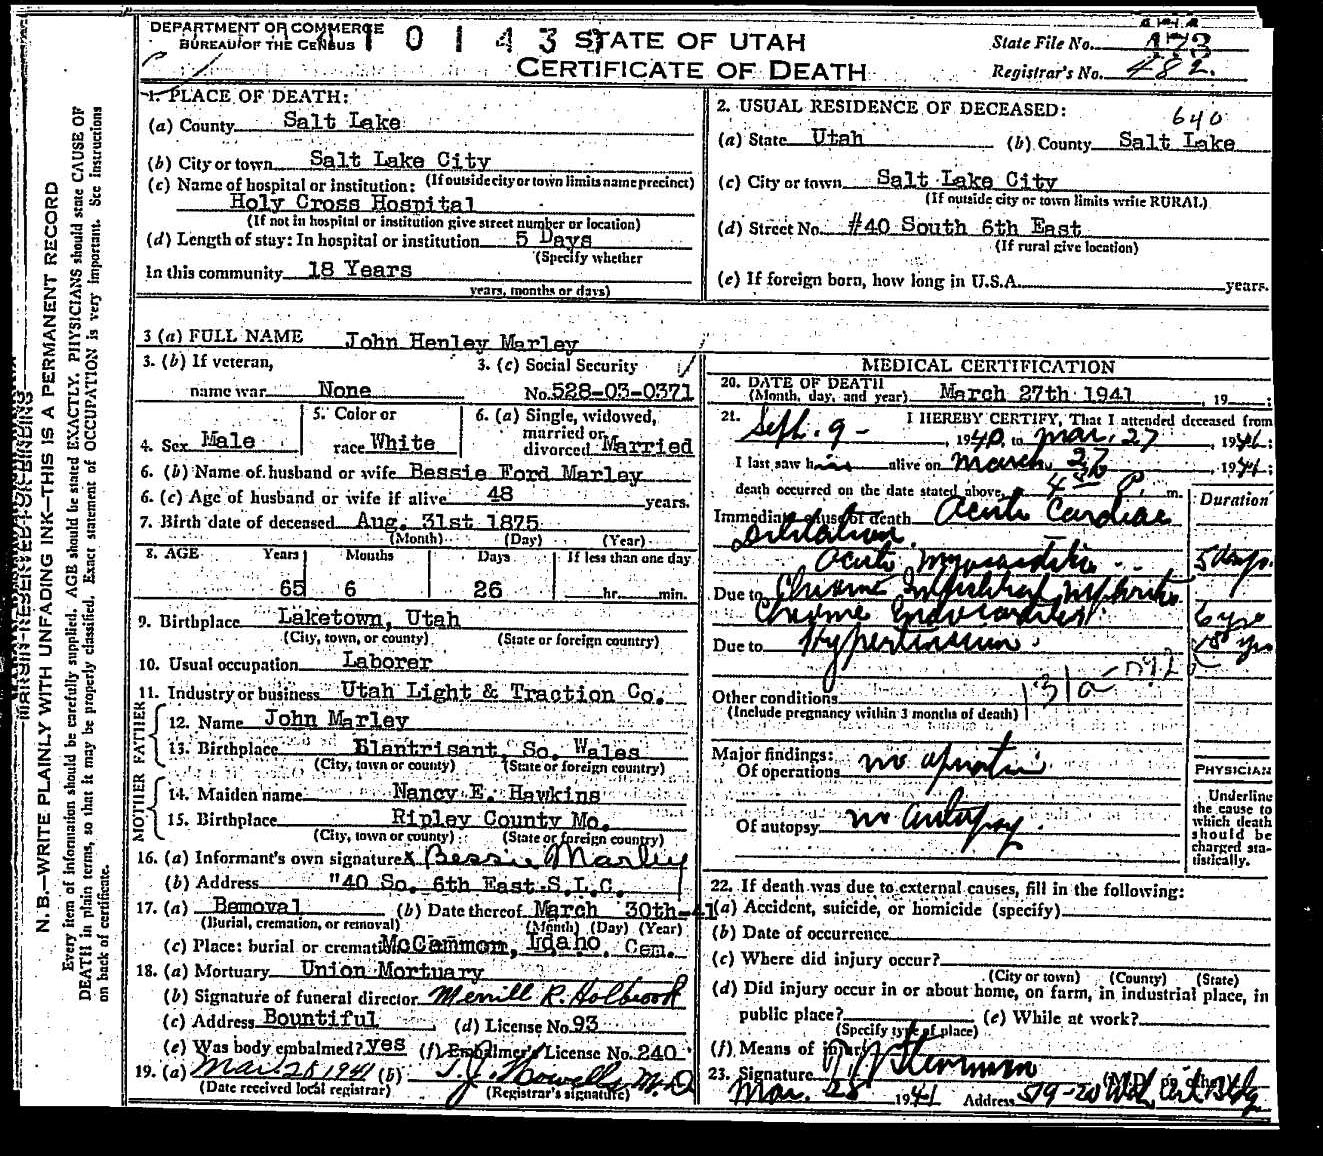 DEPARTMENT OF COMMERCE
BUREAU OF THE CENSUS
STATE OF UTAH
CERTIFICATE OF DEATH
State File No.
Registrar's No. 482.
1. PLACE OF DEATH:
(a) County Salt Lake
(b) City or town Salt Lake City
(If outside city or town limits name precinct)
(c) Name of hospital or institution:
Holy Cross Hospital
(If not in hospital or institution give street number or location)
(d) Length of stay: In hospital or institution 5 Days
(Specify whether
In this community 18 Years
years, months or days)
2. USUAL RESIDENCE OF DECEASED:
640
(a) State Utah (b) County Salt Lake
(c) City or town Salt Lake City
(If outside city or town limits write RURAL)
(d) Street No. #40 South 6th East
(If rural give location)
(e) If foreign born, how long in U.S.A. years.
3 (a) FULL NAME John Henley Marley
3. (b) If veteran,
name war None
3. (c) Social Security
No. 528-03-0371
4. Sex Male
5. Color or
race White
6. (a) Single, widowed,
married or
divorced Married
6. (b) Name of husband or wife Bessie Ford Marley
6. (c) Age of husband or wife if alive 48 years.
7. Birth date of deceased Aug. 31st 1875
(Month) (Day) (Year)
8. AGE Years Months Days If less than one day
65 6 26 hr. min.
9. Birthplace Laketown, Utah
(City, town, or county) (State or foreign country)
10. Usual occupation Laborer
11. Industry or business Utah Light & Traction Co.
FATHER
12. Name John Marley
13. Birthplace Llantrisant, So. Wales
(City, town or county) (State or foreign country)
MOTHER
14. Maiden name Nancy E. Hawkins
15. Birthplace Ripley County Mo.
(City, town or county) (State or foreign country)
16. (a) Informant's own signature x Bessie Marley
(b) Address "40 So. 6th East S.L.C.
17. (a) Removal (b) Date thereof March 30th-41
(Burial, cremation, or removal) (Month) (Day) (Year)
(c) Place: burial or cremation McCammon, Idaho Cem.
18. (a) Mortuary Union Mortuary
(b) Signature of funeral director Merrill R. Holbrook
(c) Address Bountiful (d) License No. 93
(e) Was body embalmed? yes (f) Embalmer's License No. 240
19. (a) Mar. 28 1941 (b) T. J. Howells M.D
(Date received local registrar) (Registrar's signature)
MEDICAL CERTIFICATION
20. DATE OF DEATH
(Month, day, and year) March 27th 1941, 19 ;
21. I HEREBY CERTIFY, That I attended deceased from
Sept. 9 -, 1940, to Mar. 27, 1941;
I last saw him alive on March 27, 1941;
death occurred on the date stated above, P. m.
Duration
Immediate cause of death Acute Cardiac
Dilitation
Acute Myocarditis 5 days
Due to Chronic Interstitial Nephritis
Chronic Endocarditis 6 yrs
Due to Hypertension. yrs
131a
Other conditions
(Include pregnancy within 3 months of death)
Major findings:
Of operations no operation
Of autopsy no autopsy.
PHYSICIAN
Underline
the cause to
which death
should be
charged sta-
tistically.
22. If death was due to external causes, fill in the following:
(a) Accident, suicide, or homicide (specify)
(b) Date of occurrence
(c) Where did injury occur?
(City or town) (County) (State)
(d) Did injury occur in or about home, on farm, in industrial place, in
public place? (e) While at work?
(Specify type of place)
(f) Means of injury
23. Signature
Mar. 28 1941 Address
MARGIN RESERVED FOR BINDING
N. B.—WRITE PLAINLY WITH UNFADING INK—THIS IS A PERMANENT RECORD
Every item of information should be carefully supplied. AGE should be stated EXACTLY. PHYSICIANS should state CAUSE OF
DEATH in plain terms, so that it may be properly classified. Exact statement of OCCUPATION is very important. See Instructions
on back of certificate.